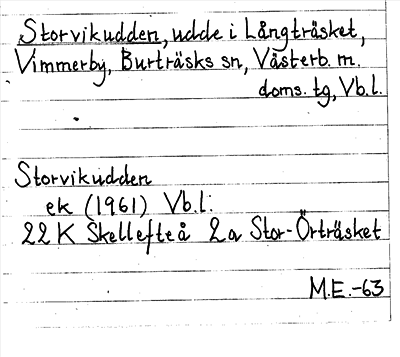 Storvikudden, udde i Långträsket,
Vimmerby, Burträsks sn, Västerb. m.
doms. tg, Vb.l.
Storvikudden
ek (1961) Vb.l:
22 K Skellefteå 2a Stor-Örträsket
M.E.-63